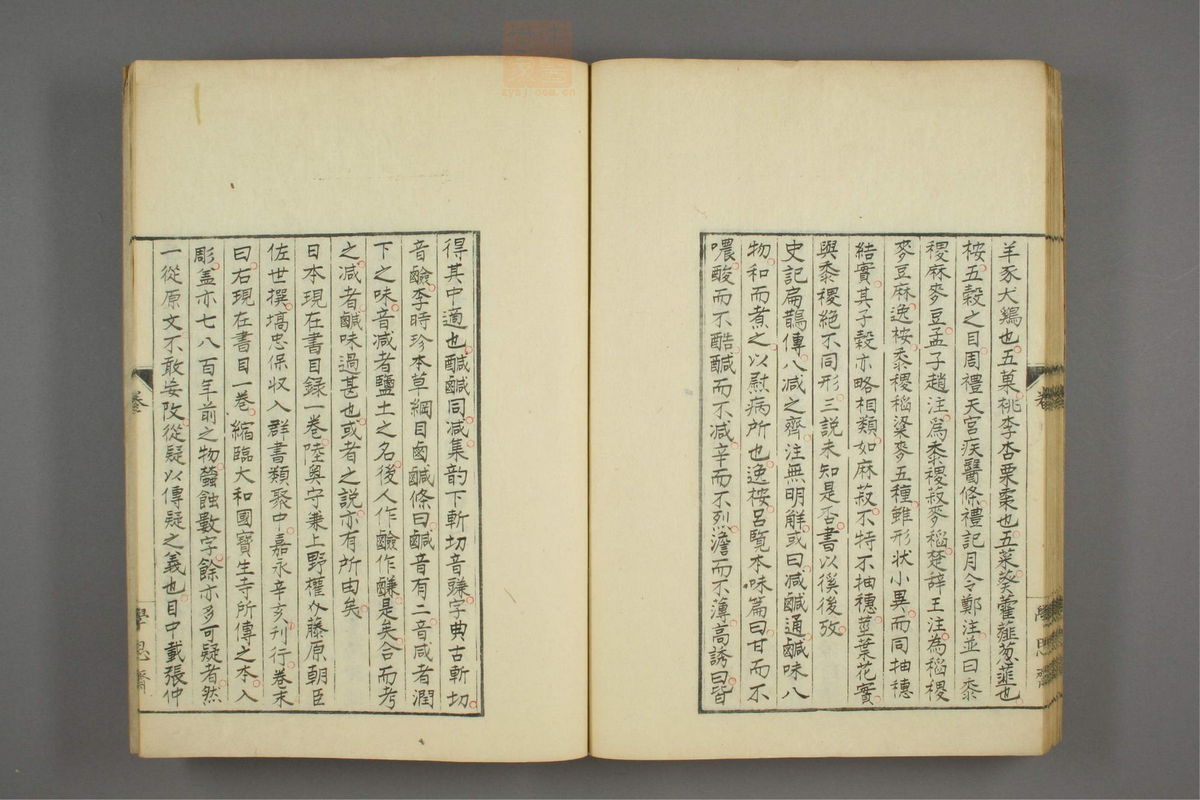 羊豕犬鷄也五菓桃李杏栗棗也五菜葵藿薤葱韮也
桉五穀之目周禮天官疾醫條禮記月令鄭注並曰黍
稷麻麥豆孟子趙注爲黍稷菽麥稻楚辞王注為稻稷
麥豆麻逸桉黍稷稻粱麥五種雖形状小異而同抽穗
結實其子穀亦略相類如麻菽不特不抽穗莖葉花實
與黍稷絶不同形三説未知是否書以徯後攷
史記扁鵲傳八减之齊注無明解或曰减鹹通鹹味八
物和而煮之以慰病所也逸桉呂覧本味篇曰甘而不
噥酸而不酷鹹而不减辛而不烈澹而不薄高誘曰皆
得其中適也醎鹹同减集韵下斬切音豏字典古斬切
音鹼李時珍本草綱目鹵鹹條曰鹹音有二音咸者潤
下之味音减者鹽土之名後人作鹼作䤘是矣合而考
之减者鹹味過甚也或者之説亦有所由矣
日本現在書目録一巻陸奥守兼上野權介藤原朝臣
佐世撰塙忠保収入群書類聚中嘉永辛亥刊行巻末
曰右現在書目一巻縮臨大和國寶生寺所傳之本入
彫盖亦七八百年前之物蠧蝕數字餘亦多可疑者然
一從原文不敢妄改從疑以傳疑之義也目中載張仲
巻
學思齋